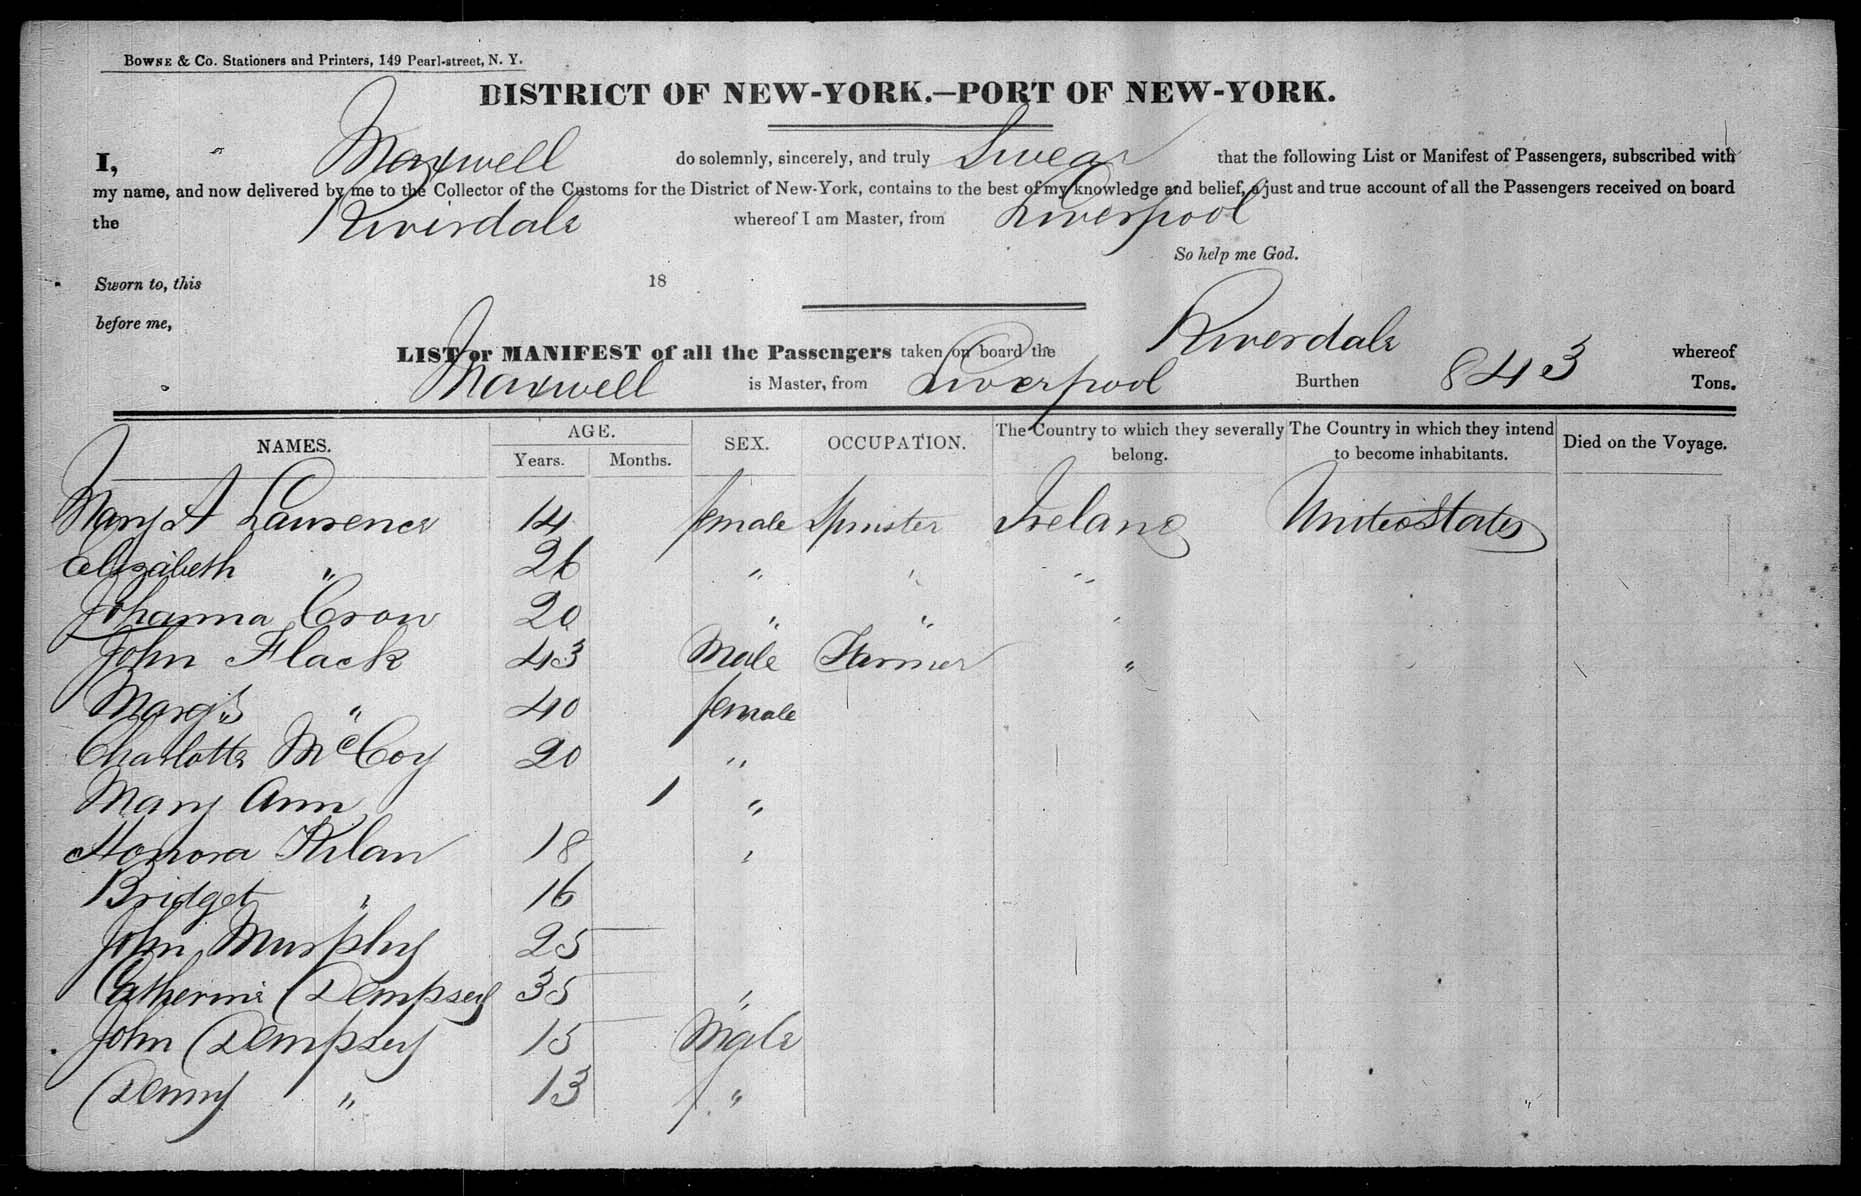 BOWNE & Co. Stationers and Printers, 149 Pearl-street, N. Y.
DISTRICT OF NEW-YORK.—PORT OF NEW-YORK.
I, Maxwell do solemnly, sincerely, and truly Swear that the following List or Manifest of Passengers, subscribed with
my name, and now delivered by me to the Collector of the Customs for the District of New-York, contains to the best of my knowledge and belief, a just and true account of all the Passengers received on board
the Riverdale whereof I am Master, from Liverpool
So help me God.
Sworn to, this 18
before me,
LIST or MANIFEST of all the Passengers taken on board the Riverdale whereof
Maxwell is Master, from Liverpool Burthen 843 Tons.
NAMES. AGE. Years. Months. SEX. OCCUPATION. The Country to which they severally belong. The Country in which they intend to become inhabitants. Died on the Voyage.
Mary A Laurence 14 female Spinster Ireland United States
Elizabeth " 26 " " "
Johanna Crow 20 " " "
John Flack 43 Male Farmer "
Margt " 40 female
Charlotte McCoy 20 "
Mary Ann 1 "
Honora 18 "
Bridget " 16
John Murphy 25
Catherine Dempsey 35 "
John Dempsey 15 Male
Denny " 13 "